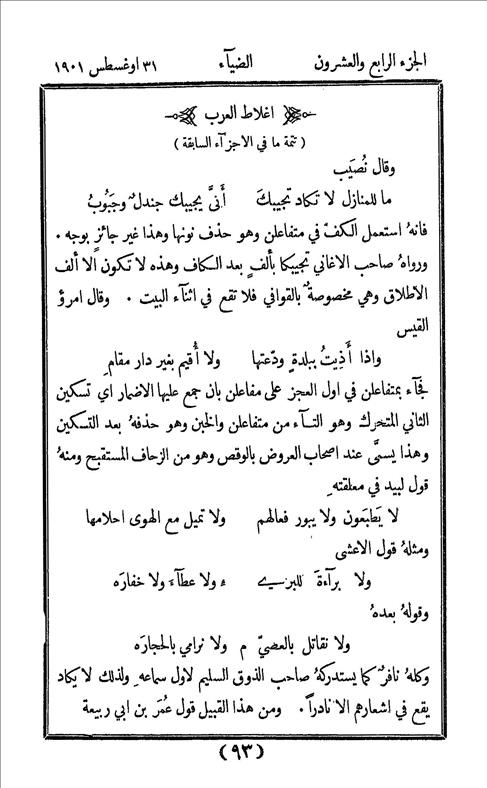 الجزء الرابع والعشرون الضيآء ٣١ اوغسطس ١٩٠١
اغلاط العرب
( تتمة ما في الاجزآء السابقة )
وقال نُصَيب
ما للمنازل لا تكاد تجيبكَ أَنَّى يجيبك جندلٌ وجَبُوبُ
فانهُ استعمل الكفّ في متفاعلن وهو حذف نونها وهذا غير جائزٍ بوجه .
ورواهُ صاحب الاغاني تجيبكما بألفٍ بعد الكاف وهذه لا تكون الا ألف
الاطلاق وهي مخصوصةٌ بالقوافي فلا تقع في اثنآء البيت . وقال امرؤ
القيس
واذا أَذِيتُ ببلدةٍ ودّعتها ولا أُقيم بغير دار مقامِ
فجآء بمتفاعلن في اول العجز على مفاعلن بان جمع عليها الاضمار اي تسكين
الثاني المتحرك وهو التآء من متفاعلن والخبن وهو حذفهُ بعد التسكين
وهذا يسمَّى عند اصحاب العروض بالوقص وهو من الزحاف المستقبح ومنهُ
قول لبيد في معلقتهِ
لا يَطبَعون ولا يبور فعالهم ولا تميل مع الهوى احلامها
ومثلهُ قول الاعشى
ولا برآءةَ للبريـ ء ولا عطآءَ ولا خفارَه
وقولهُ بعدهُ
ولا نقاتل بالعصيّ م ولا نرامي بالحجارَه
وكلهُ نافرٌ كما يستدركهُ صاحب الذوق السليم لاول سماعهِ ولذلك لا يكاد
يقع في اشعارهم الا نادراً . ومن هذا القبيل قول عُمَر بن ابي ربيعة
(٩٣)